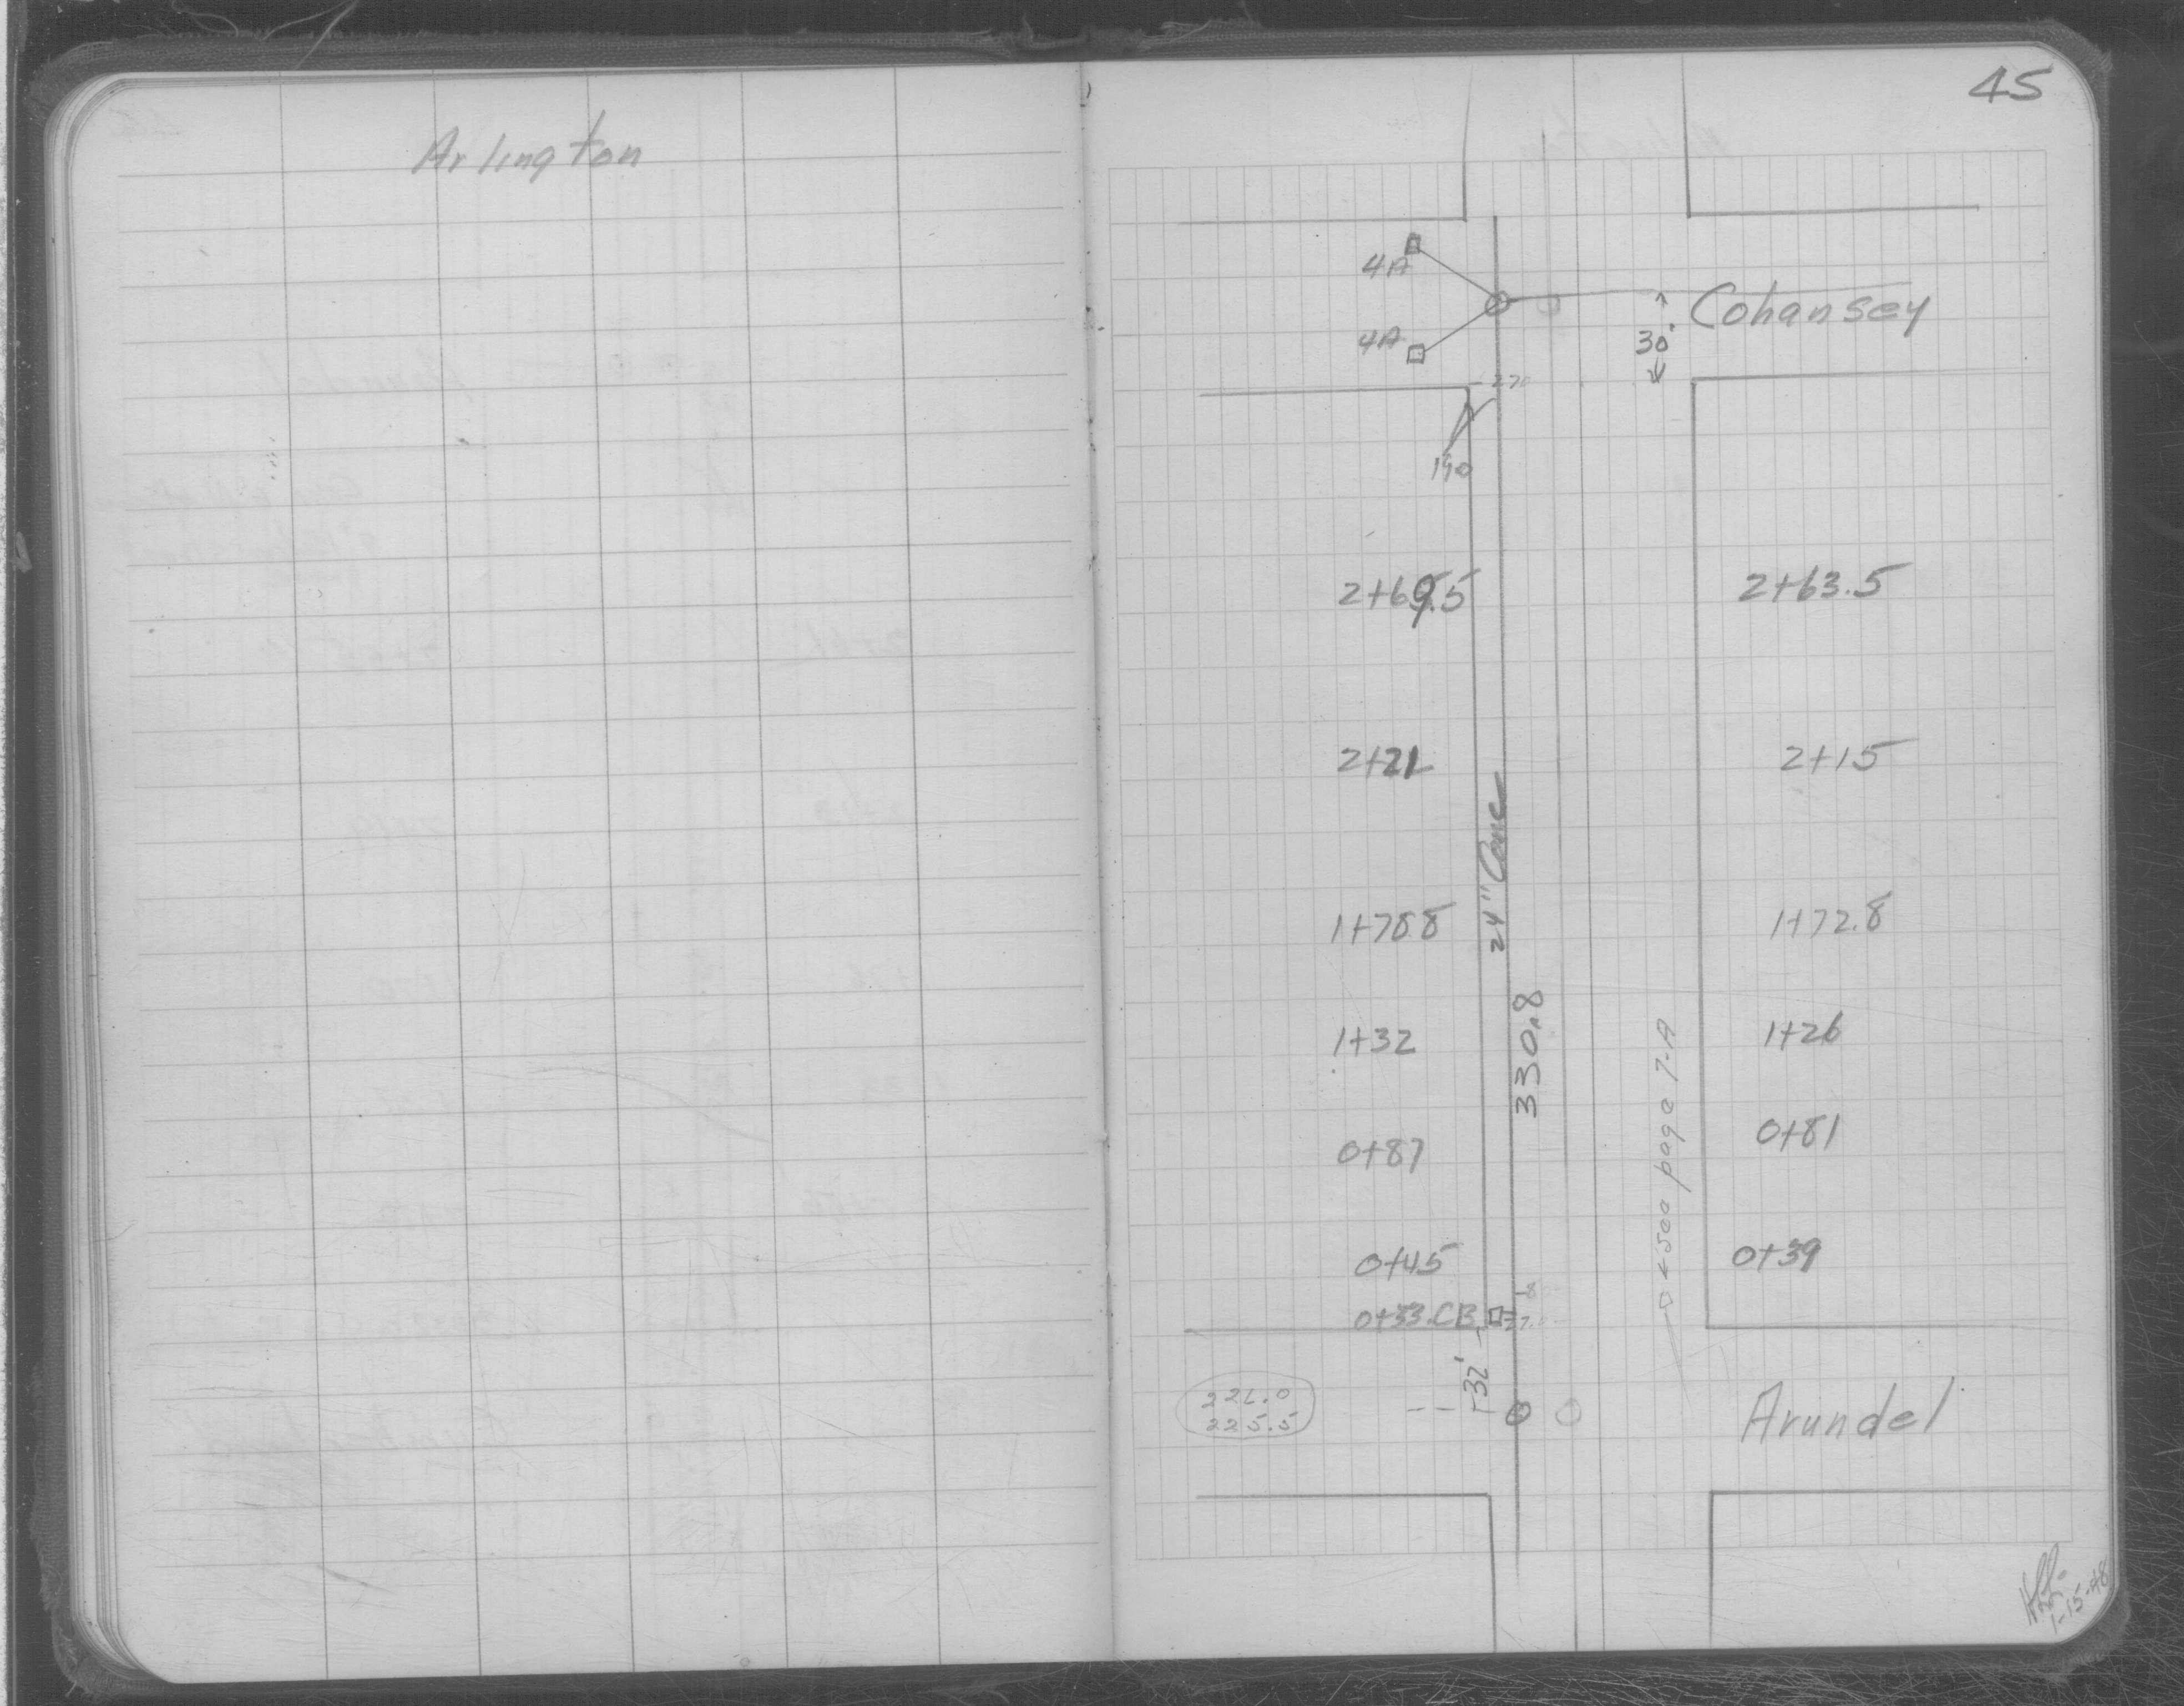 Arlington
45
4A
4A
Cohansey
30'
190
2+69.5
2+63.5
2+21
2+15
24" Conc
1+78.8
1+72.8
330.8
1+32
1+26
0+87
0+81
see page 7-A
0+45
0+39
0+33.CB
32'
225.5
Arundel
1-15-48